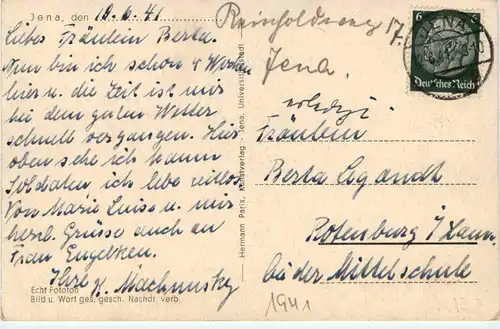 Jena, den 19.6.41
Liebes Fräulein Berta.
Nun bin ich schon 4 Wochen
hier u. die Zeit ist mir
bei dem guten Wetter
schnell vergangen. Hier
oben sehe ich kaum
Soldaten ich lebe zeitlos
Von Marie Luise u. mir
herzl. Grüsse auch an
Frau Engelken.
Ihre H.
Echt Fototon
Bild u. Wort ges. gesch. Nachdr. verb.
Hermann Paris, Kunstverlag - Jena, Universitätsstadt
Reinholdsweg 17.
Jena.
erledigt
Fräulein
Berta
Rotenburg i/Hann
bei der Mittelschule
1941
6
JENA
Deutsches Reich